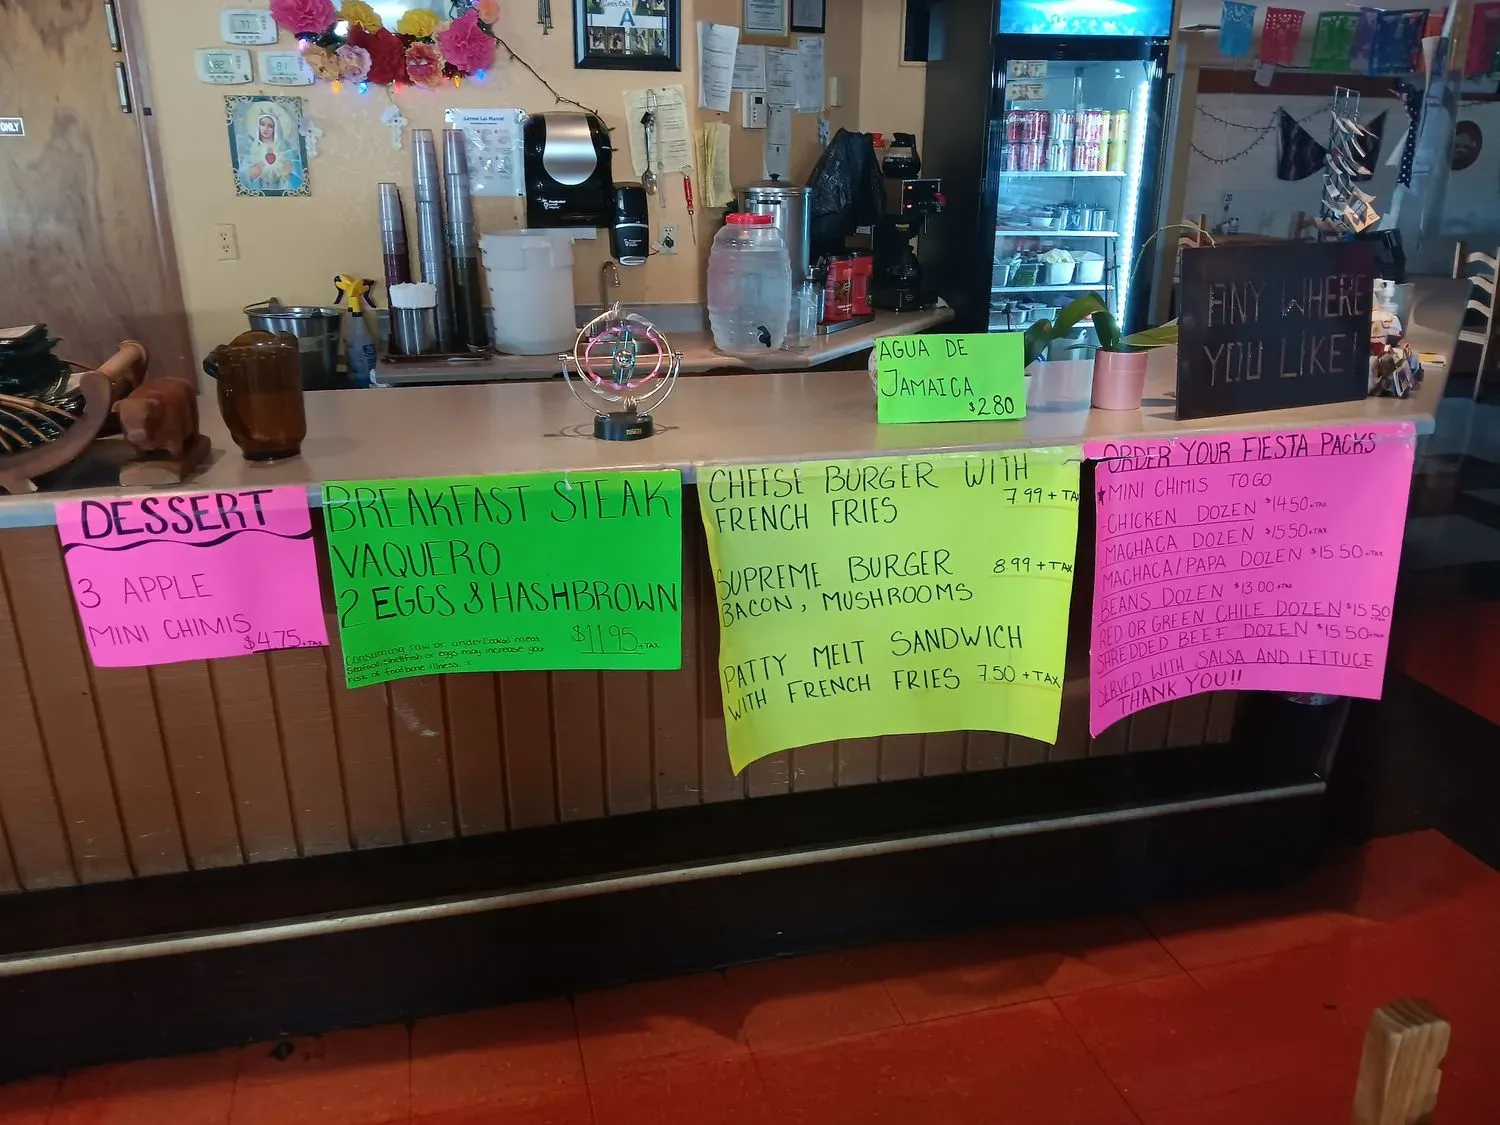 ONLY
AGUA DE
JAMAICA
$2.80
ANY WHERE
YOU LIKE!
DESSERT
3 APPLE
MINI CHIMIS
$4.75+TAX
BREAKFAST STEAK
VAQUERO
2 EGGS & HASHBROWN
$11.95+TAX
Consuming raw or undercooked meat
seafood, shellfish or eggs may increase your
risk of foodborne illness.
CHEESE BURGER WITH
FRENCH FRIES 7.99 + TAX
SUPREME BURGER 8.99 + TAX
BACON, MUSHROOMS
PATTY MELT SANDWICH
WITH FRENCH FRIES 7.50 + TAX
ORDER YOUR FIESTA PACKS
MINI CHIMIS TO GO
-CHICKEN DOZEN $14.50+TAX
MACHACA DOZEN $15.50+TAX
MACHACA/PAPA DOZEN $15.50+TAX
BEANS DOZEN $13.00+TAX
RED OR GREEN CHILE DOZEN $15.50
SHREDDED BEEF DOZEN $15.50+TAX
SERVED WITH SALSA AND LETTUCE
THANK YOU!!